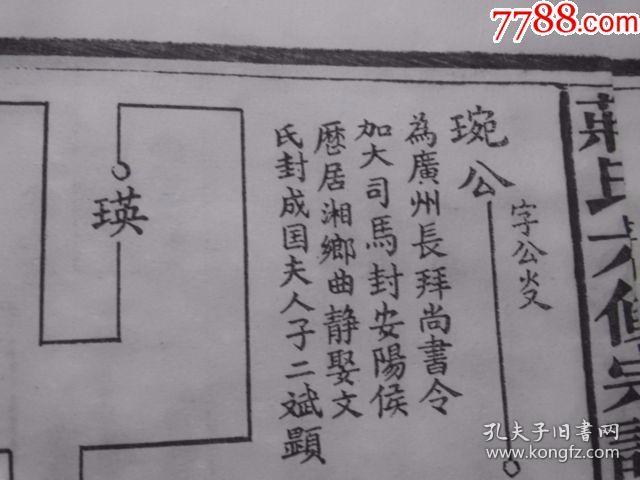 7788.com
琬公
字公琰
為廣州長拜尚書令
加大司馬封安陽侯
歷居湘鄉曲静娶文
氏封成国夫人子二斌顕
瑛
孔夫子旧书网
www.kongfz.com